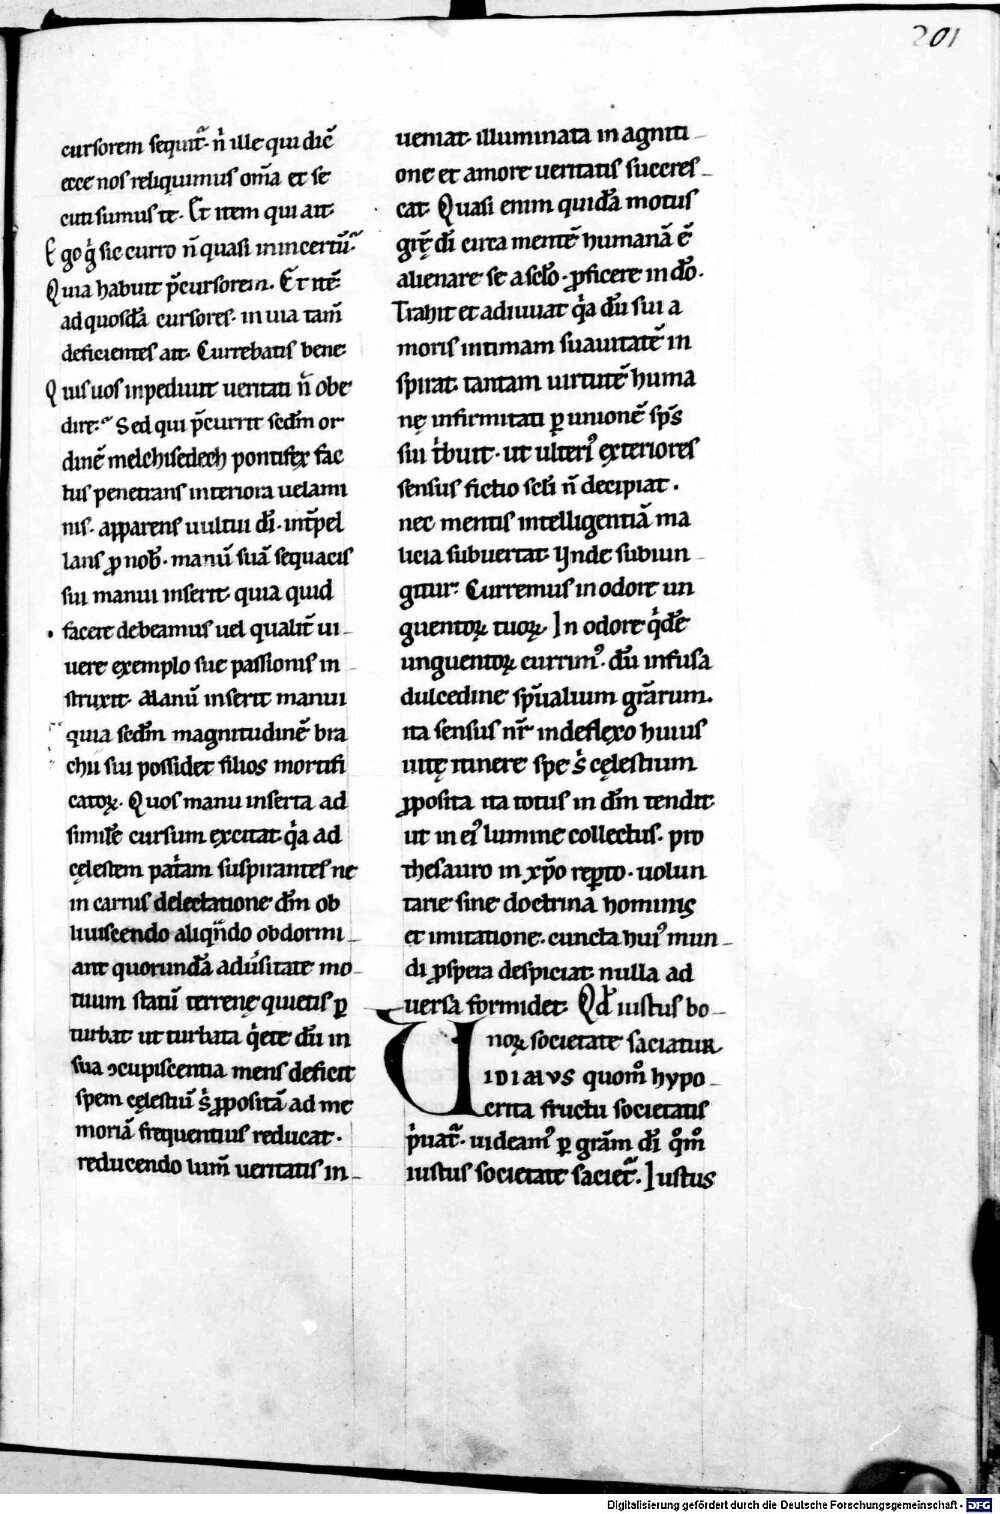 201
cursorem sequit᷑. n̉ ille qui dic̄
ecce nos reliquimus om̄a et se
cuti sumus te. Et item qui ait.
Ego g̊ sic curro n̄ quasi in incertū.
Quia habuit p̄cursorem. Et itē
ad quosdā cursores. in uia tam̄
deficientes ait. Currebatis bene
Quis uos inpediuit ueritati n̄ obe
dire. Sed qui p̄currit scd̄m or
dinē melchisedech pontifex fac
tus penetrans interiora uelami
nis. apparens uultui dī. int̄pel
lans ꝓ nob̄. manū suā sequacis
sui manui inserit quia quid
facere debeamus uel qualit̄ ui
uere exemplo sue passionis in
struxit. Manū inserit manui
quia scd̄m magnitudinē bra
chii sui possidet filios mortifi
catoꝝ. Quos manu inserta ad
similē cursum excitat. q̇a ad
cęlestem pat̉am suspirantes ne
in carnis delectatione dm̄ ob
liuiscendo aliqn̄do obdormi
ant quorundā adu̓sitate mo
tuum statū terrenę quietis ꝑ
turbat ut turbata q̇ete dū in
sua ꝯcupiscentia mens deficit
spem cęlestiū s̉ ꝓpositā ad me
moriā frequentius reducat.
reducendo lum̄ ueritatis in
ueniat. illuminata in agniti
one et amore ueritatis succres
cat. Quasi enim quidā motus
grę̄ dī circa mentē humanā ē
alienare se a sc̄lo. ꝓficere in dō.
Trahit et adiuuat q̇a dū sui a
moris intimam suauitatē in
spirat. tantam uirtutē huma
nę infirmitati ꝑ unionē sp̄s
sui t̉buit. ut ulteriꝰ exteriores
sensus fictio sc̄li n̄ decipiat.
nec mentis intelligentiā ma
licia subuertat. Vnde subiun
gitur. Curremus in odore un
guentoꝝ tuoꝝ. In odore q̇dē
unguentoꝝ currimꝰ. dū infusa
dulcedine sp̄ualium gr̄arum.
ita sensus nr̄ indeflexo huius
uitę itinere spe s̉ cęlestium
ꝓposita ita totus in dm̄ tendit.
ut in eiꝰ lumine collectus. pro
thesauro in xp̄o rep̄to. uolun
tarie sine doctrina hominis
et imitatione. cuncta huiꝰ mun
di ꝓspera despiciat. nulla ad
uersa formidet. Qd̄ iustus bo
noꝝ societate saciatur
VIDIMVS quom̊ hypo
crita fructu societatis
p̉uat᷑. uideamꝰ ꝑ gr̄am dī q̊m̊
iustus societate saciet᷑. Iustus
Digitalisierung gefördert durch die Deutsche Forschungsgemeinschaft - DFG